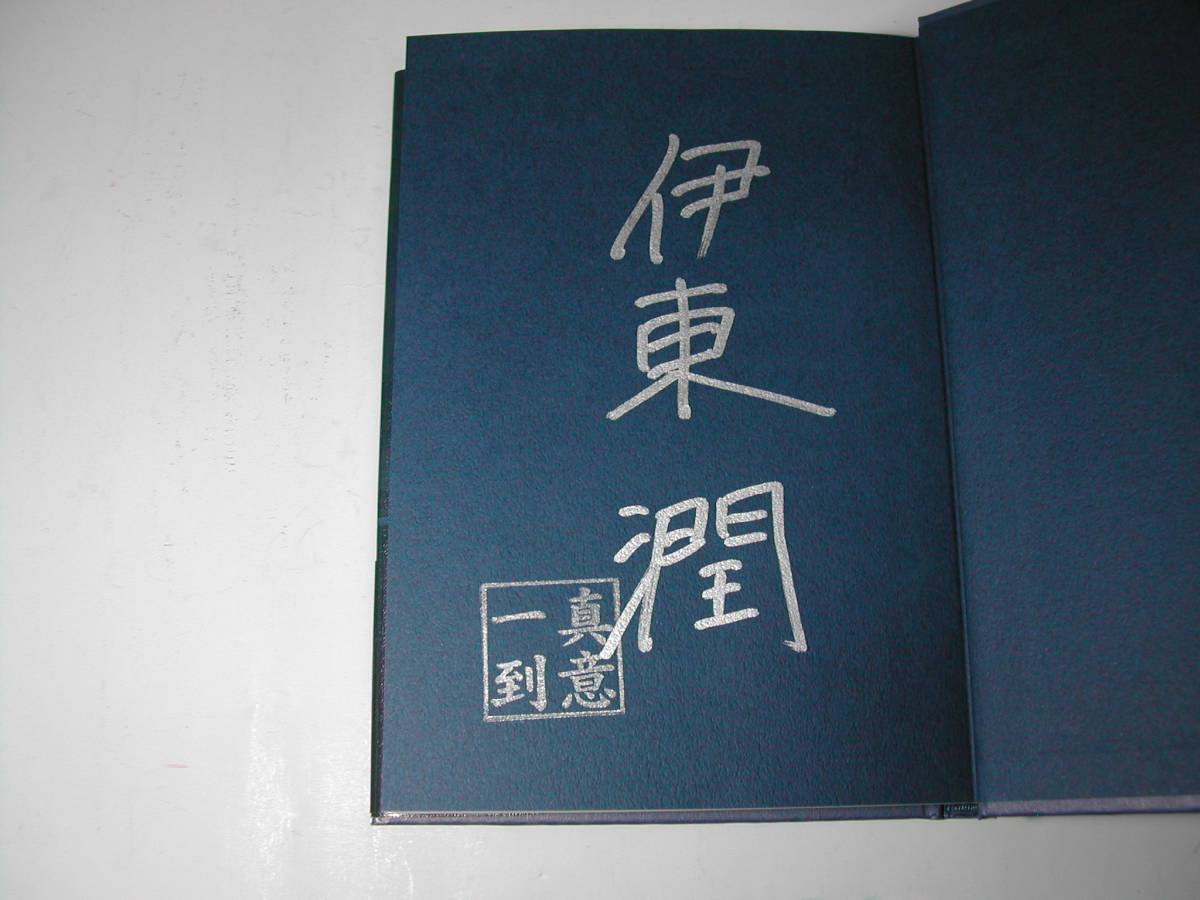 伊東
潤
真意
一到